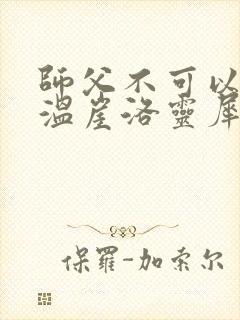 師父不可以
溫崖洛靈犀
保羅-加索尔